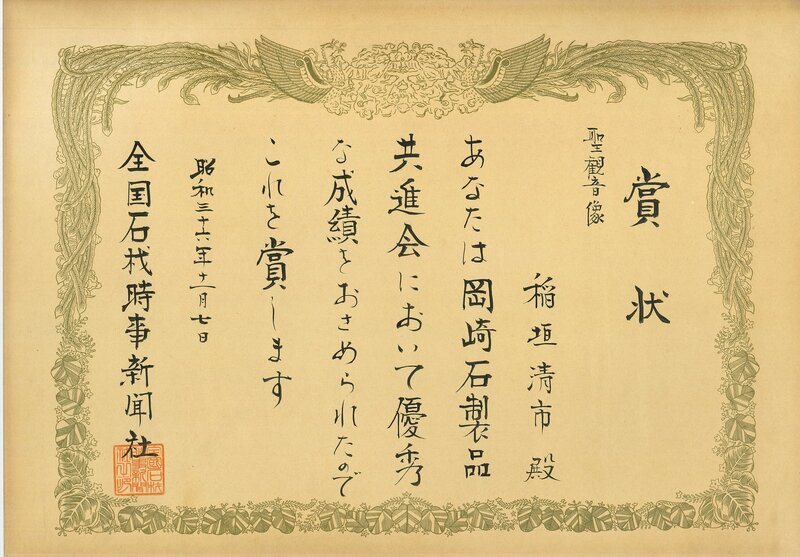 賞状
聖観音像
稲垣清市殿
あなたは岡崎石製品
共進会において優秀
な成績をおさめられたので
これを賞します
昭和三十六年十一月七日
全国石材時事新聞社